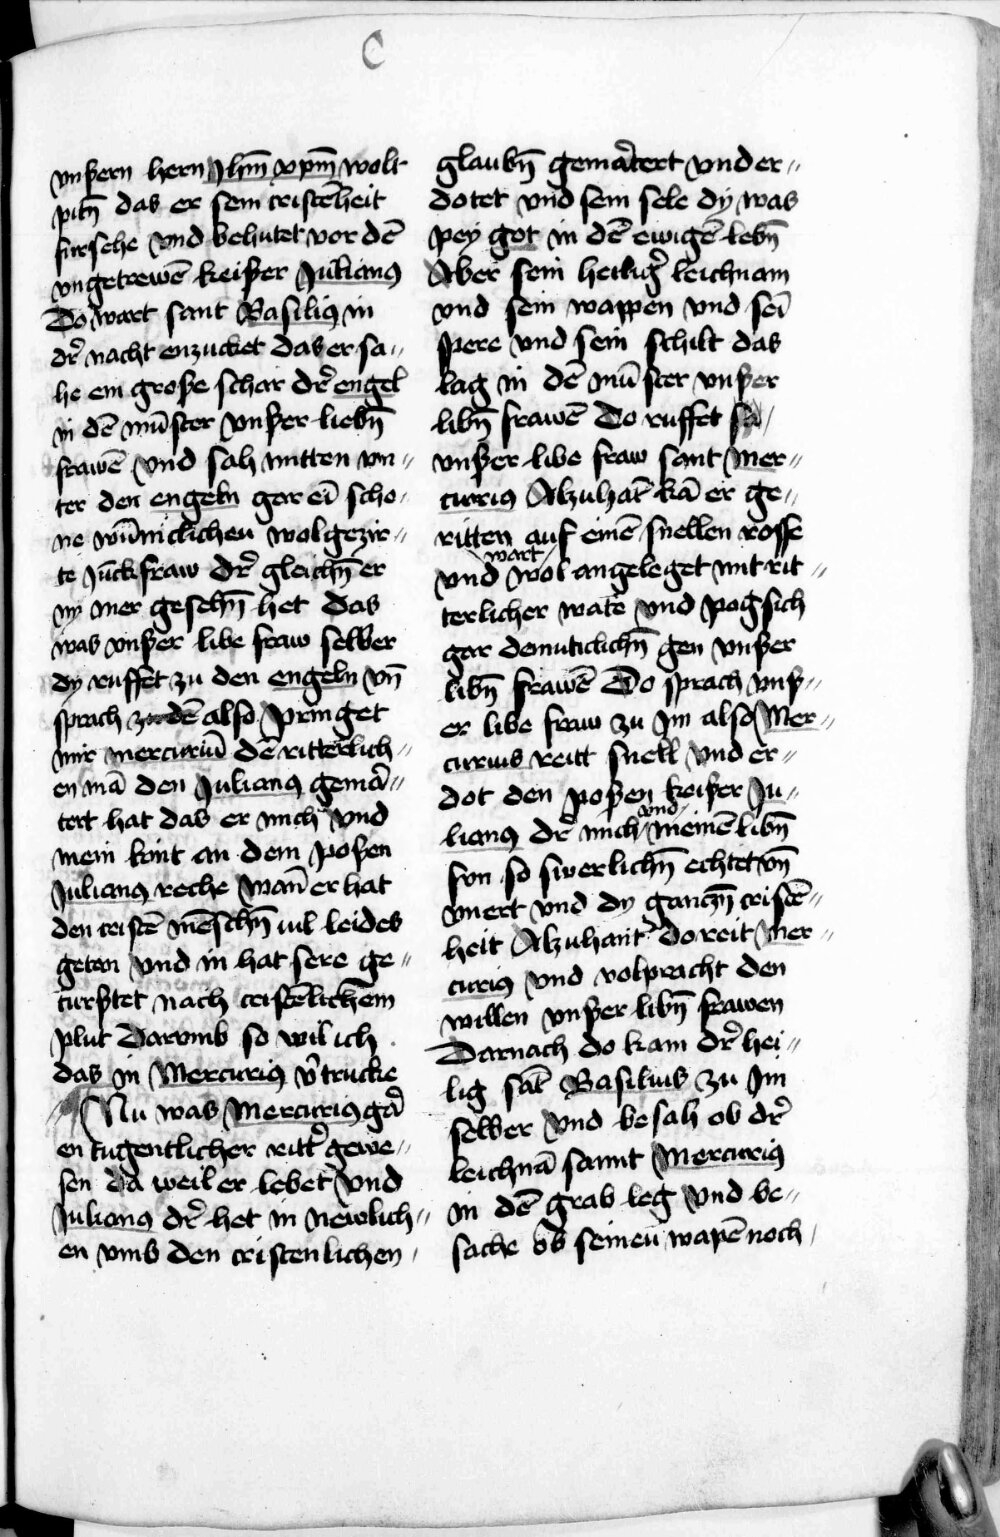 C
vnßern hern Jhm̄ xpm̄ wolt
pitn̄ das er sein cristēheit
fursehe vnd behutet vor dē
vngetrewē keißer Julianꝰ
Do wart sant Basiliꝰ in
dr̄ nacht enzucket das er sa〃
he ein große schar dr̄ engel
in dē mūster vnßer liebn̄
frawē vnd sah mitten vn〃
ter den engeln gar eī scho〃
ne wūniclichen wolgezir〃
te Jūckfraw dr̄ gleichn̄ er
ny mer gesehn̄ het das
was vnßer libe fraw selber
dy ruffet zu den engeln vn̄
sprach also pringet
mir mercuriū dē ritterlich〃
en mā den Julianꝰ gemar̄〃
tert hat das er mich vnd
mein kint an dem poßen
Julianꝰ reche wan̄ er hat
den cristē mēschn̄ vil leides
geton vnd in hat sere ge〃
turstet nach cristēlichem
plut Darvmb so wil ich
das in Mercuriꝰ v̄trucke
Nu was Mercuriꝰ gar̄
en tugentlicher ritt̄ gewe〃
sen da weil er lebet vnd
Julianꝰ dr̄ het in newlich〃
en vmb den cristenlichen
glaubn̄ gemar̄tert vnd er〃
dotet vnd sein sele dy was
pey got in dē ewigē lebn̄
Aber sein heiligr̄ leichnam
vnd sein wappen vnd seī
spere vnd sein schilt das
lag in dē mūster vnßer
libn̄ frawē Do ruffet
vnßer libe fraw sant Mer〃
curiꝰ Alzuhāt kā er ge〃
ritten auf einē snellen rosse
vnd wart wol angeleget mit rit〃
terlicher wate vnd pog sich
gar demuticlichn̄ gen vnßer
libn̄ frawē Do sprach vnß〃
er libe fraw zu Jm also Mer〃
curius reitt snell vnd er〃
dot den poßen keißer Ju〃
lianꝰ dr̄ mich vnd meinē libn̄
son so swerlichn̄ echtet vn̄
vnert vnd dy gantzn̄ cristē〃
heit Alzuhant do reit Mer〃
curiꝰ vnd volpracht den
willen vnßer libn̄ frawen
Darnach do kam dr̄ hei〃
lig sāt Basilius zu Jm
selber vnd besah ob dr̄
leichnā sannt Mercuriꝰ
in dē grab leg vnd be〃
sache ob seineu wapē noch